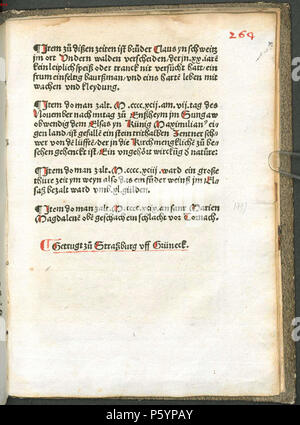 264
¶Item zů dißen zeiten ist brůder Claus yn schweitz
ym ort Undern walden verscheiden / der jn .xx. iarē
kein leiplich speiß oder tranck nit versůcht hatt / ein
frum einfeltig baurßman / vnd eins harte leben mit
wachen und kleydung.
¶Item do man zalt. M. cccc. xcij. am. vij. tag des
Nouember nach mitag zů Enßheym jm Sungaw
obwendig dem Elsas yn König Maximilian⁹ ei⸗
gen land / ist gefallē ein stein tritthalben Zentner schwer
von dē lüfften / der jn die Kirchen gehēckt zů be⸗
sehen gehenckt ist. Ein ungehört wirckūg d̄ natur⸗
¶Item do man zalt. M. cccc. xciij. ward ein große
thüre zeit ym weyn also das ein fůder weinß jm El⸗
saß bezalt ward umb gl. gülden.
¶Item do man zalt. M. cccc. xcix. an sant Marien
Magdalenē obē geschach ein schlacht vor Dornach.
¶Getrugt zů Straßburg vff Grüneck.
alamy
Image ID: P5YPAY
www.alamy.com